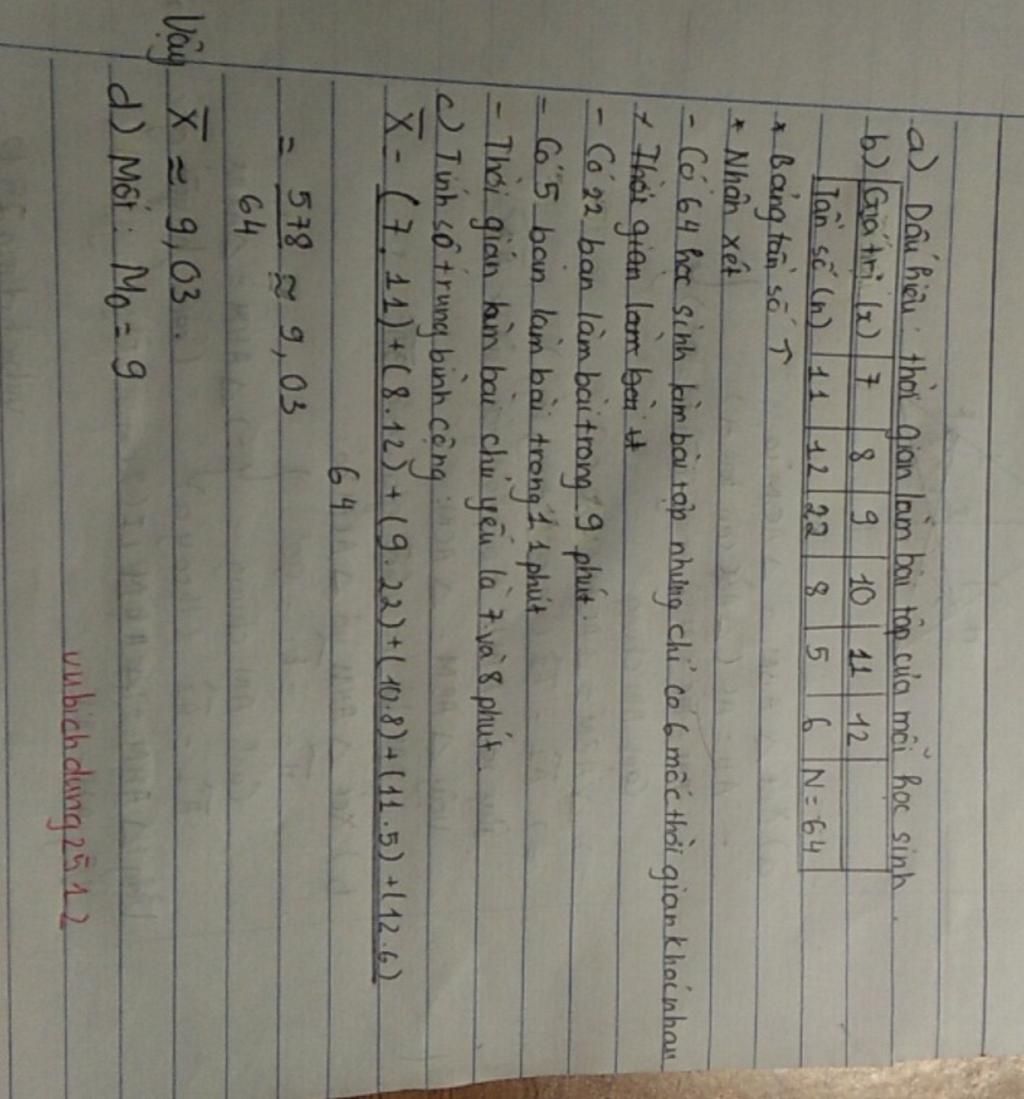 a) Dấu hiệu: thời gian làm bài tập của mỗi học sinh.
b) Giá trị (x) 7 8 9 10 11 12
Tần số (n) 11 12 22 8 5 6 N=64
* Bảng tần số ↑
* Nhận xét
- Có 64 học sinh làm bài tập nhưng chỉ có 6 mốc thời gian khác nhau
+ Thời gian làm bài
- Có 22 bạn làm bài trong 9 phút.
- Có 5 bạn làm bài trong 11 phút
- Thời gian làm bài chủ yếu là 7 và 8 phút.
c) Tính số trung bình cộng
X̅ = (7.11)+(8.12)+(9.22)+(10.8)+(11.5)+(12.6)
64
= 578 ≈ 9,03
64
Vậy X̅ ≈ 9,03.
d) Mốt: M₀ = 9
vubichdung2512